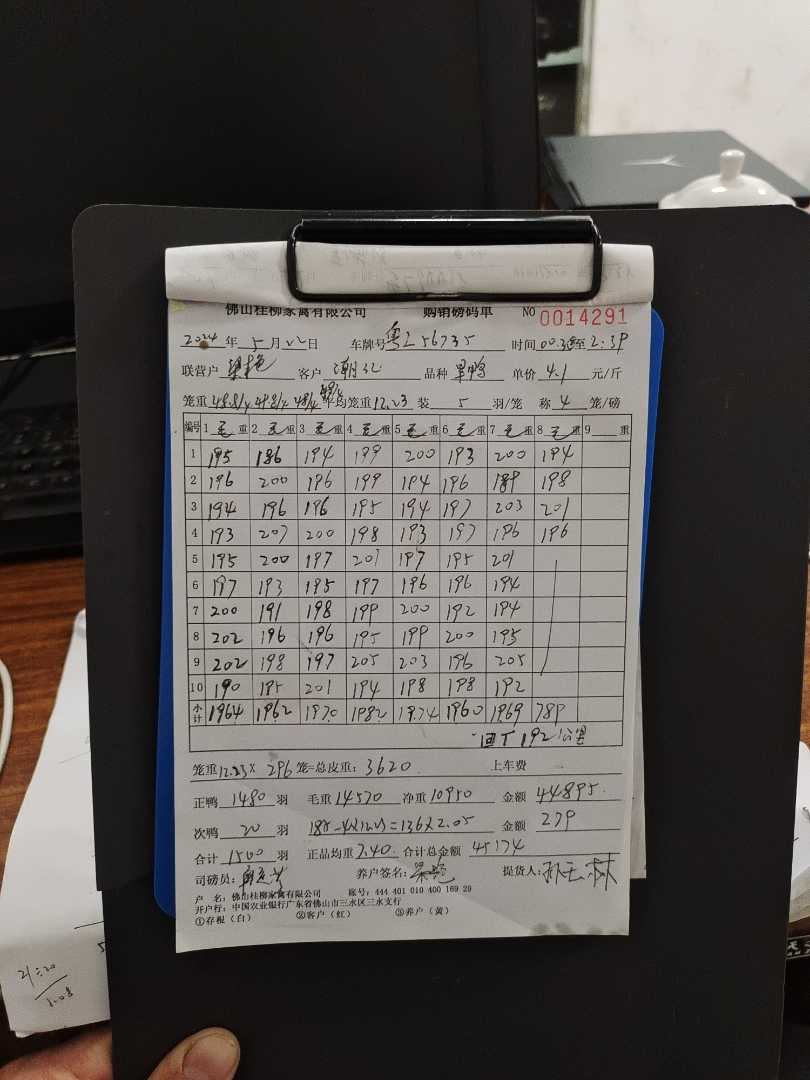 佛山桂柳家禽有限公司 购销磅码单 NO 0014291
2024 年 5 月 22 日 车牌号 粤L56735 时间 00:38 至 2:39
联营户 客户 潮汕 品种 单价 4.1 元/斤
笼重 48.8/4 48.8/4 48/4 平均笼重 12.23 装 5 羽/笼 称 4 笼/磅
编号 1 毛 重 2 毛 重 3 毛 重 4 毛 重 5 毛 重 6 毛 重 7 毛 重 8 毛 重 9 重
1 195 186 194 199 200 193 200 194
2 196 200 196 199 194 196 189 198
3 194 196 196 195 194 197 203 201
4 193 207 200 198 193 197 196 196
5 195 200 197 201 197 195 201
6 197 193 195 197 196 196 194
7 200 191 198 199 200 192 194
8 202 196 196 195 199 200 195
9 202 198 197 205 203 196 205
10 190 195 201 194 198 198 192
小计 1964 1962 1970 1982 1974 1960 1969 789
回 192 公里
笼重 12.23 × 296 笼=总皮重: 3620 上车费
正鸭 1480 羽 毛重 14570 净重 10950 金额 44895
次鸭 20 羽 185-4×12.23=136×2.05 金额 279
合计 1500 羽 正品均重 7.40 合计总金额 45174
司磅员: 养户签名: 提货人:
户 名: 佛山桂柳家禽有限公司 账号: 444 401 010 400 169 29
开户行: 中国农业银行广东省佛山市三水区三水支行
①存根(白) ②客户(红) ③养户(黄)
21÷20